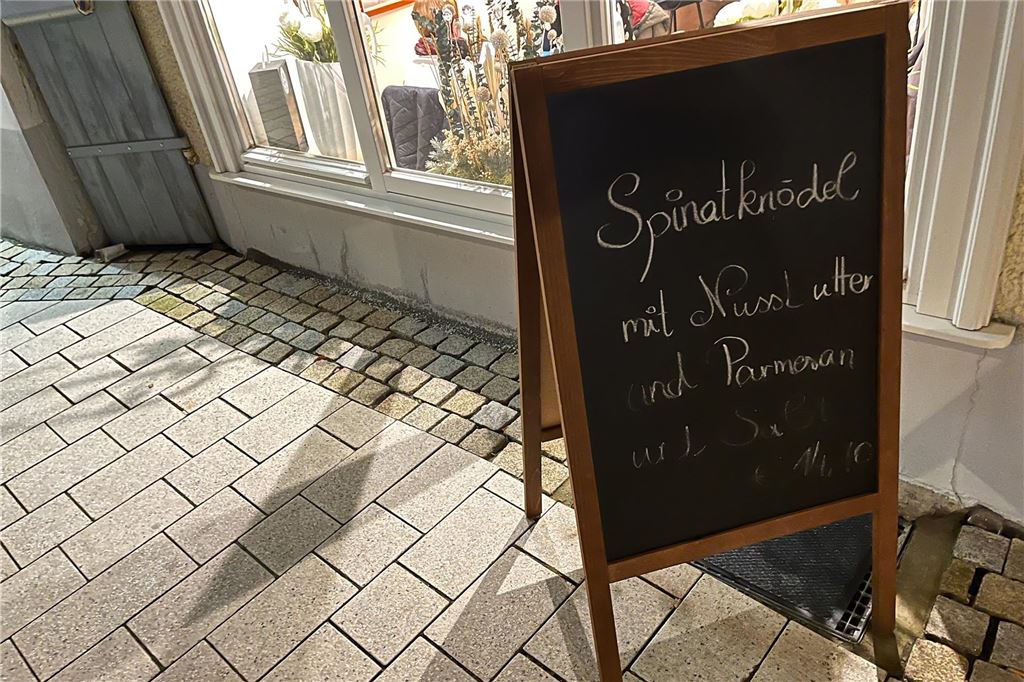 Spinatknödel
mit Nussbutter
und Parmesan
und Salat
€ 14,10